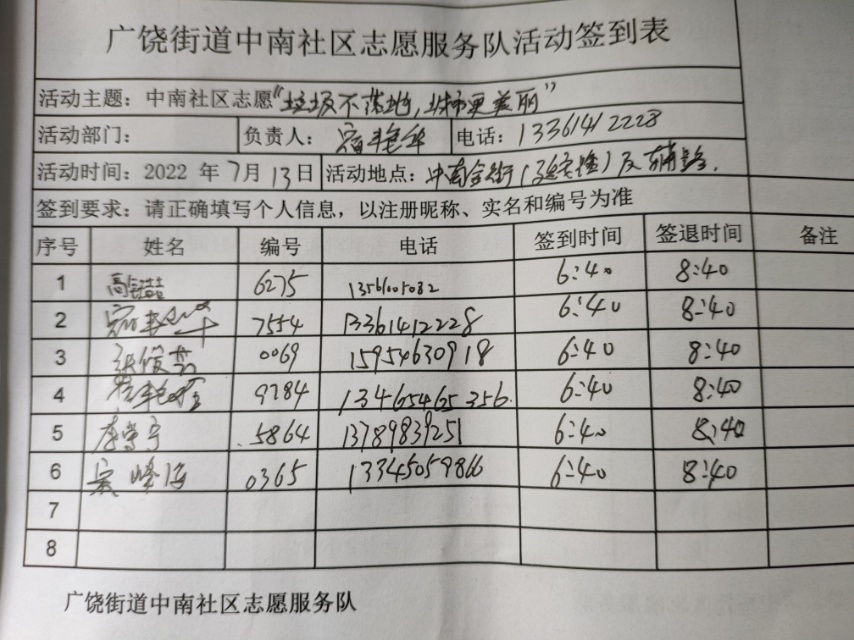 广饶街道中南社区志愿服务队活动签到表
活动主题：中南社区志愿“垃圾不落地，城市更美丽”
活动部门： 负责人： 电话：13361412228
活动时间：2022 年 7月 13日 活动地点：中南金街
签到要求：请正确填写个人信息，以注册昵称、实名和编号为准
序号 姓名 编号 电话 签到时间 签退时间 备注
1 6275 13561005082 6:40 8:40
2 7554 13361412228 6:40 8:40
3 张俊芸 0069 15954630918 6:40 8:40
4 9784 13465465356 6:40 8:40
5 李学宁 5864 13789839251 6:40 8:40
6 吴峰海 0365 13345059866 6:40 8:40
7
8
广饶街道中南社区志愿服务队